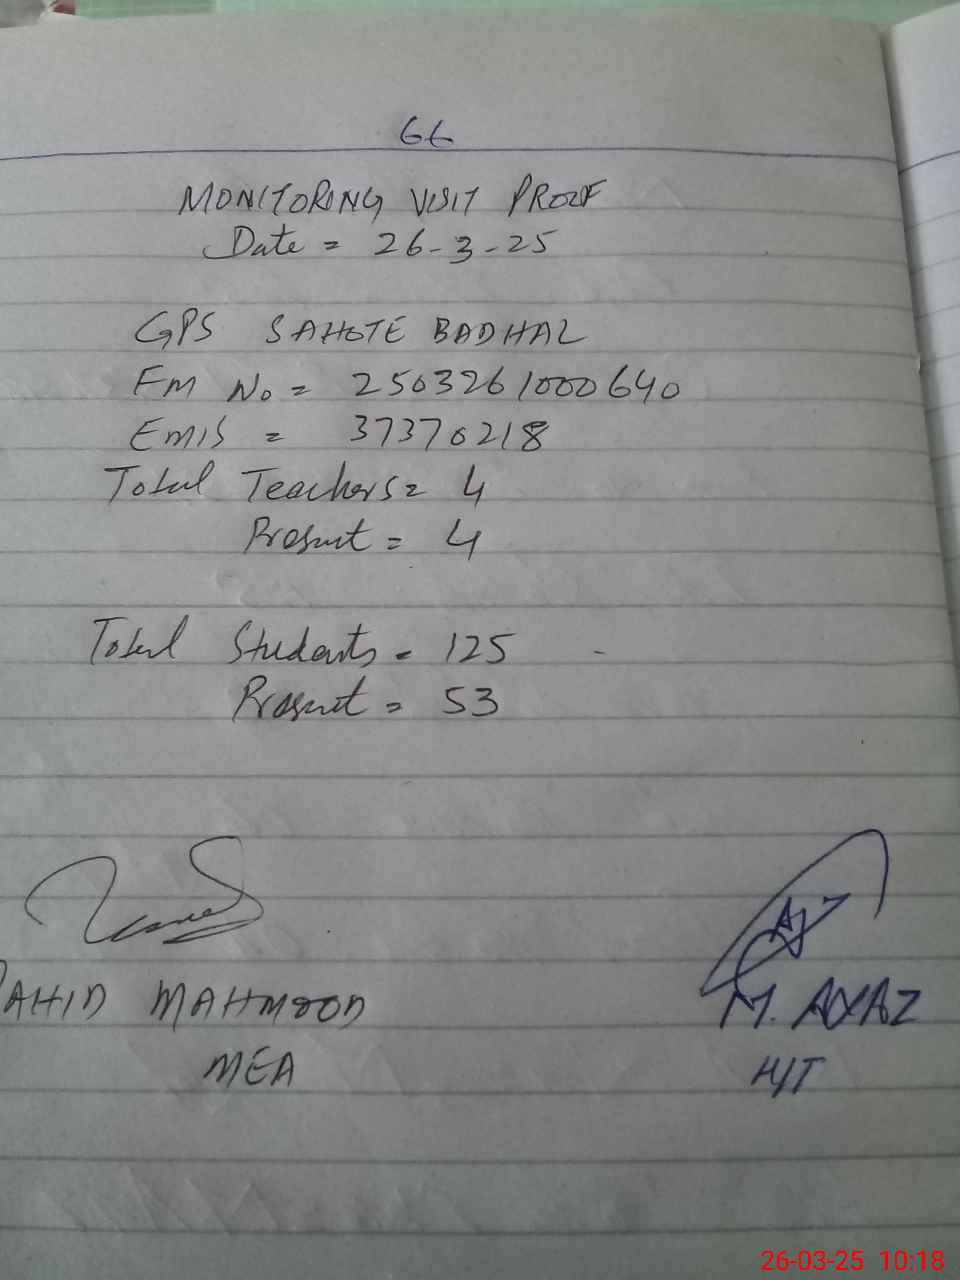 66
MONITORING VISIT PROOF
Date = 26-3-25
GPS SAHOTE BADHAL
FM No = 2503261000640
EMIS = 37370218
Total Teachers = 4
Present = 4
Total Students = 125
Present = 53
AHID MAHMOOD
M. AYAZ
MEA
H/T
26-03-25 10:18